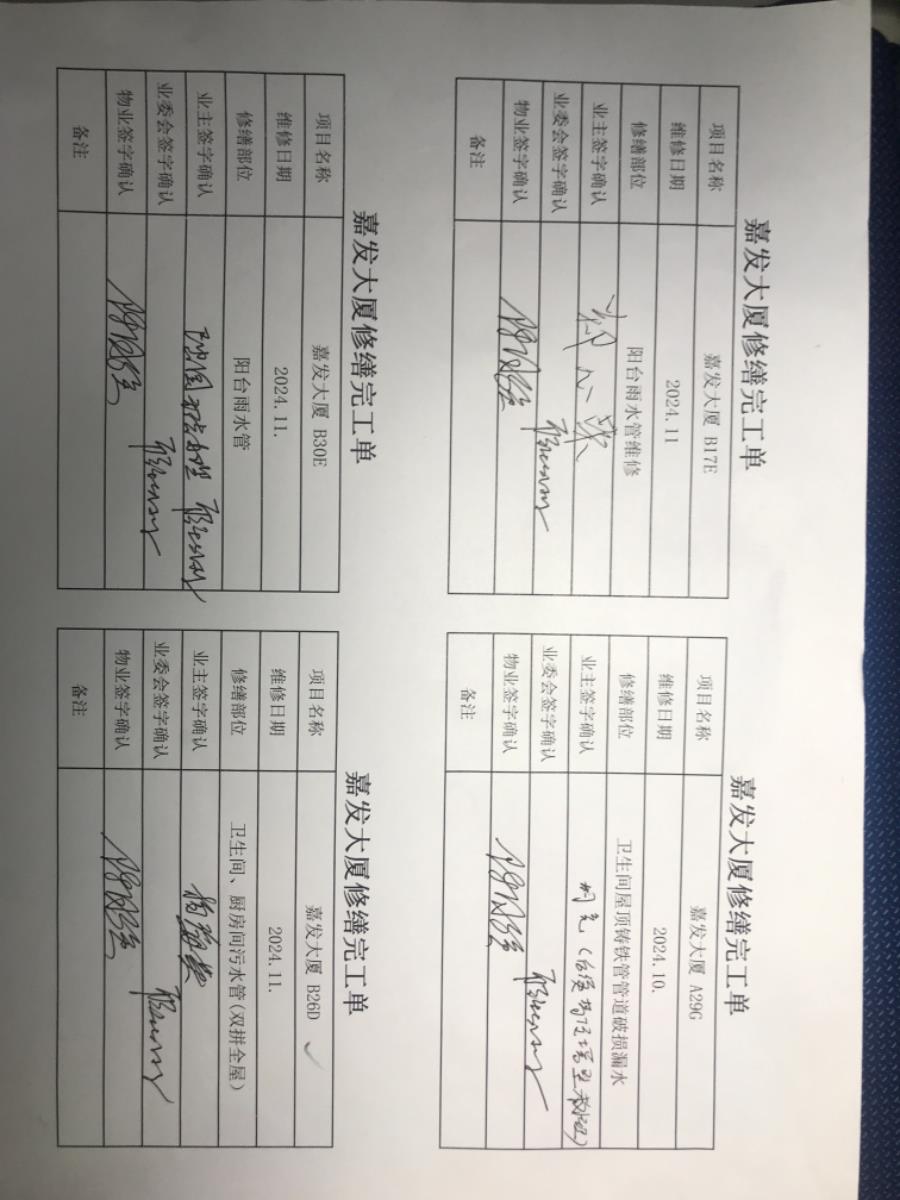 嘉发大厦修缮完工单
项目名称 嘉发大厦 B17E
维修日期 2024.11
修缮部位 阳台雨水管维修
业主签字确认
业委会签字确认
物业签字确认
备注
嘉发大厦修缮完工单
项目名称 嘉发大厦 A29G
维修日期 2024.10.
修缮部位 卫生间屋顶铸铁管管道破损漏水
业主签字确认
业委会签字确认
物业签字确认
备注
嘉发大厦修缮完工单
项目名称 嘉发大厦 B30E
维修日期 2024.11.
修缮部位 阳台雨水管
业主签字确认
业委会签字确认
物业签字确认
备注
嘉发大厦修缮完工单
项目名称 嘉发大厦 B26D
维修日期 2024.11.
修缮部位 卫生间、厨房间污水管(双拼全屋)
业主签字确认
业委会签字确认
物业签字确认
备注